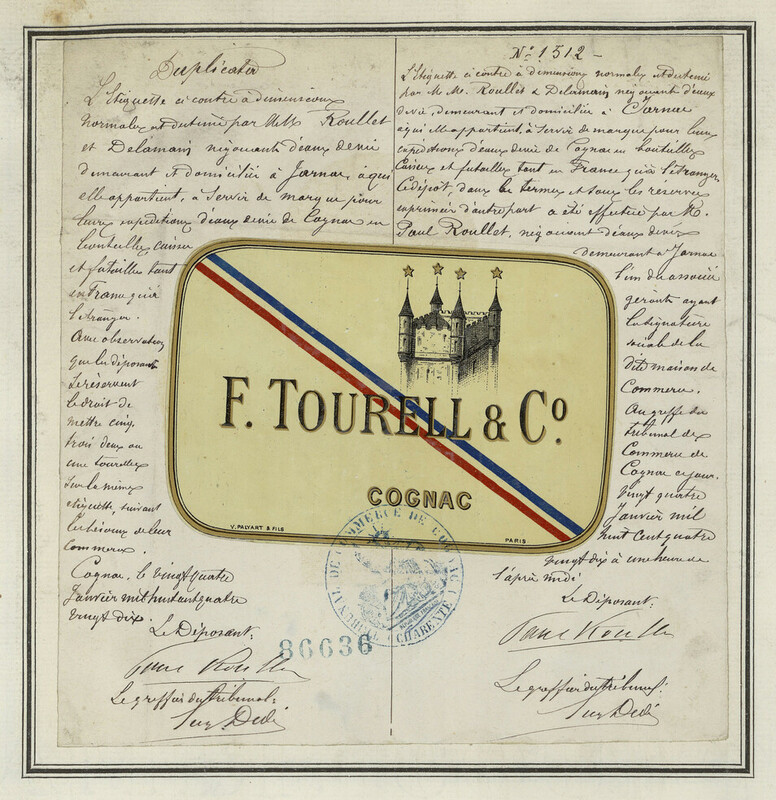 Duplicata
L'Etiquette ci contre à dimensions
normales est destinée par M.M. Roullet
et Delamain négociants d'eaux de vie
demeurant et domiciliés à Jarnac, à qui
elle appartient, à servir de marque pour
leurs expéditions d'eaux de vie de Cognac en
bouteilles caisses
et futailles tant
en France qu'à
l'étranger.
Avec observation
que les déposants
se réservent
le droit de
mettre cinq,
trois deux ou
une tourelles
sur la même
étiquette suivant
les besoins de leur
commerce.
Cognac, le vingt quatre
Janvier mil huit cent quatre
vingt dix.
Le Déposant:
Paul Roullet
Le greffier du tribunal:
N° 1512 -
L'étiquette ci contre à dimensions normales est destinée
par M.M. Roullet & Delamain négociants d'eaux
de vie, demeurant et domiciliés à Jarnac
à qui elle appartient, à servir de marque pour leurs
expéditions d'eaux de vie de Cognac en bouteilles
caisses et futailles tant en France qu'à l'étranger.
Ce dépôt dans les termes et sous les réserves
exprimés d'autre part a été effectué par M.
Paul Roullet, négociant d'eaux de vie
demeurant à Jarnac
l'un des associés
gérants ayant
la signature
sociale de la
dite maison de
Commerce.
Au greffe du
tribunal de
Commerce de
Cognac ce jour.
vingt quatre
Janvier mil
huit cent quatre
vingt dix à une heure de
l'après midi
Le Déposant:
Paul Roullet
Le greffier du tribunal:
F. TOURELL & Co.
COGNAC
V. PALYART & FILS
PARIS
TRIBUNAL DE COMMERCE DE COGNAC
CHARENTE
86636